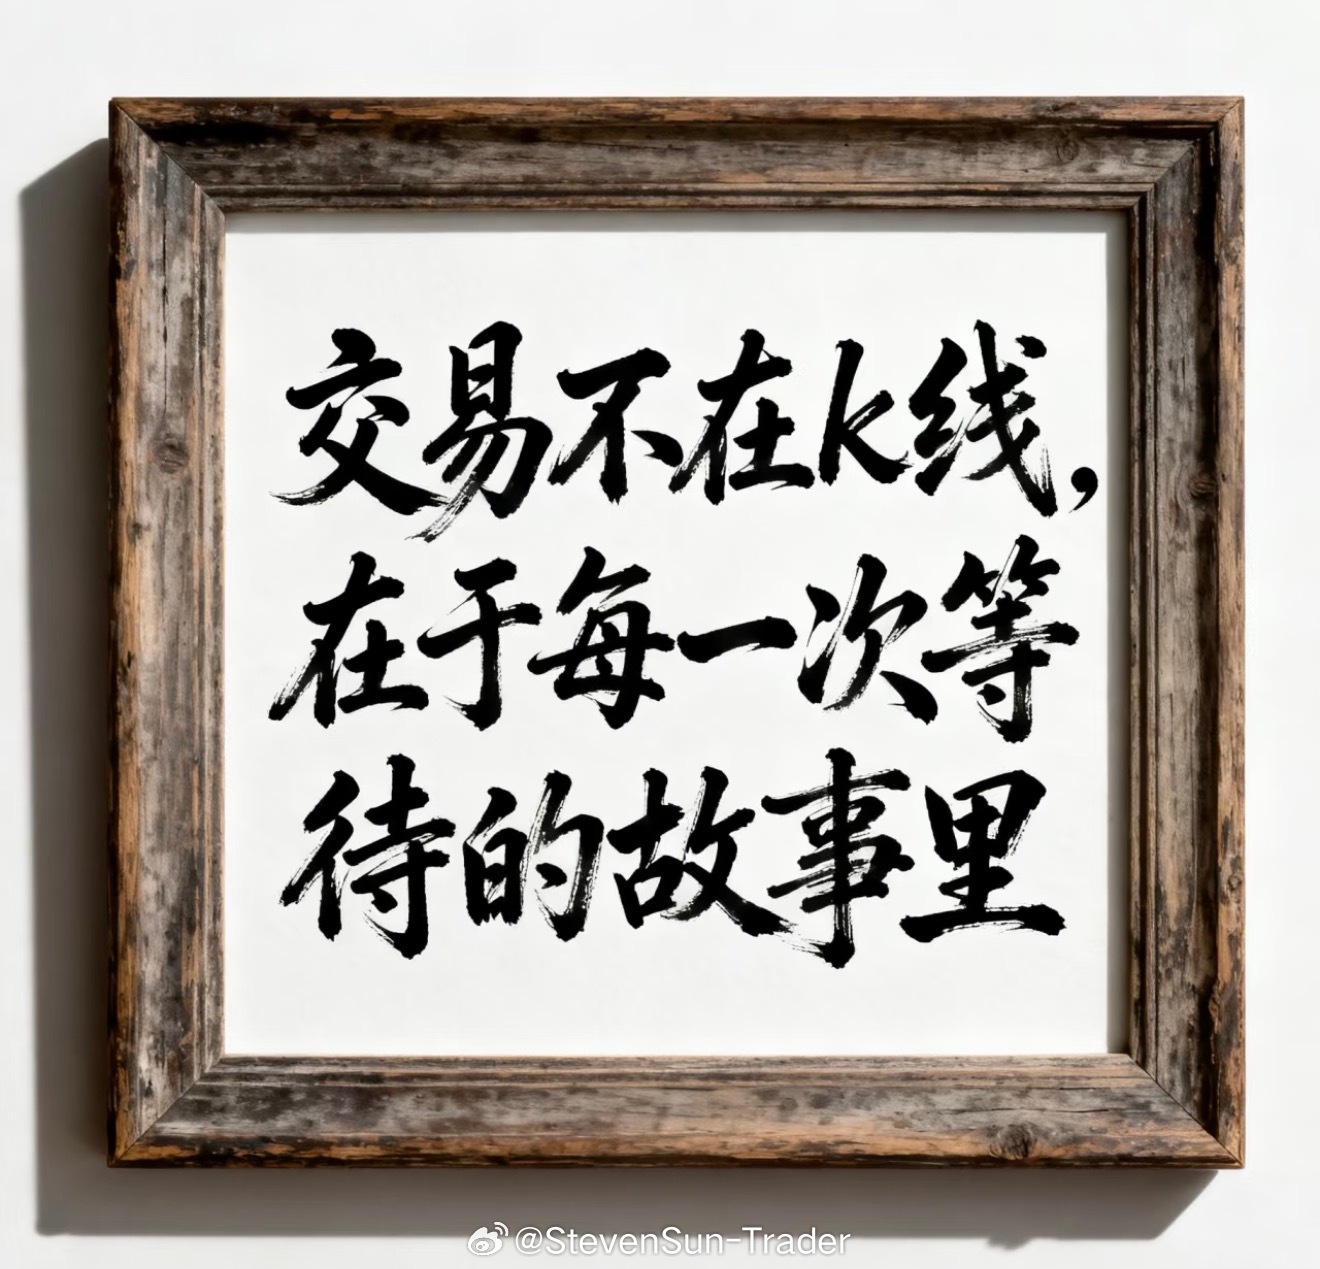 交易不在k线，
在于每一次等
待的故事里
@StevenSun-Trader